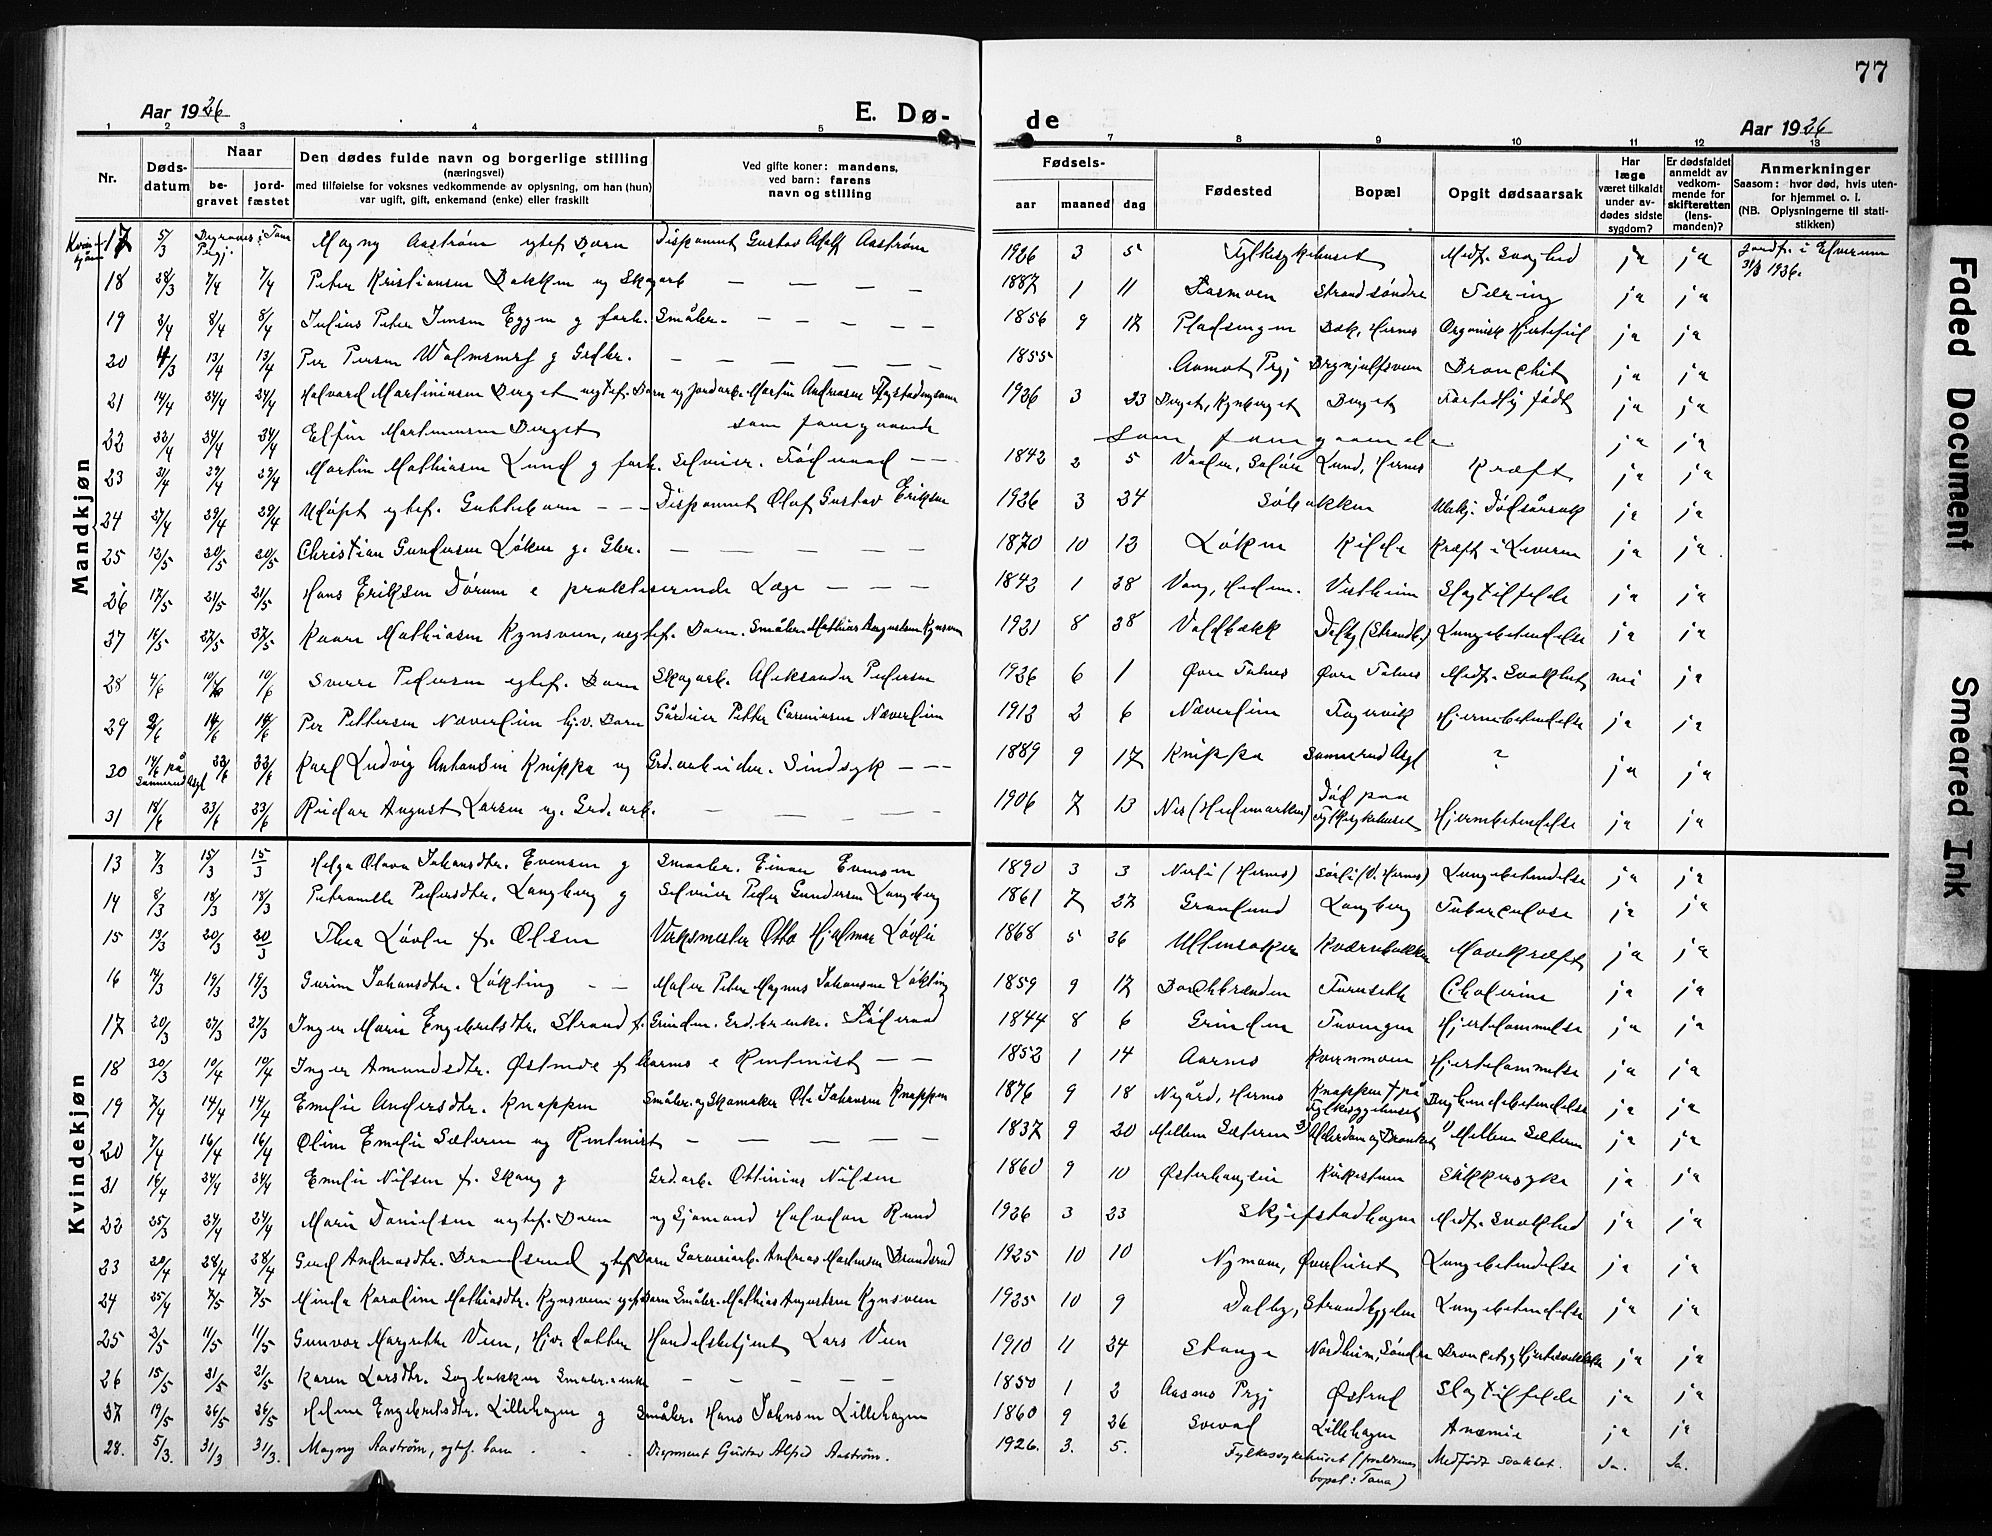 77
Aar 1926
E. Dø-
de
Aar 1926
1 2 3 4 5 7 8 9 10 11 12 13
Nr.
Døds-
datum
Naar
be-
gravet
jord-
fæstet
Den dødes fulde navn og borgerlige stilling
(næringsvei)
med tilføielse for voksnes vedkommende av oplysning, om han (hun)
var ugift, gift, enkemand (enke) eller fraskilt
Ved gifte koner: mandens,
ved barn: farens
navn og stilling
Fødsels-
aar
maaned
dag
Fødested
Bopæl
Opgit dødsaarsak
Har
læge
været tilkaldt
under av-
dødes sidste
sygdom?
Er dødsfaldet
anmeldt av
vedkom-
mende for
skifteretten
(lens-
manden)?
Anmerkninger
Saasom: hvor død, hvis uten-
for hjemmet o. l.
(NB. Oplysningerne til stati-
stikken)
Mandkjøn
17 5/3 Magny Aastrøm egtef. Barn Disponent Gustav Adolf Aastrøm 1926 3 5 Fylkesykehuset Medf. Svaghed ja ja Jordf. i Elverum
1936.
18 28/3 7/4 7/4 Peter Kristiansen Bakken ug Skogarb — — — 1887 1 11 Strandsøndre Tæring ja ja
19 3/4 8/4 8/4 Julius Peter Jensen Eggen g forh. Småbr. — — — — 1856 9 17 Pladsengen Bæk, Hernes Organisk Hjertefeil ja ja
20 4/3 13/4 13/4 Per Persen g Grdbr. — — — — 1855 Aamot Prgj Brynjulfsveen Bronchit ja ja
21 14/4 24/4 24/4 Halvard Martiniusen Berget uegtef. Barn ug Jordarb. Martin Andreasen 1926 3 23 Berget, Kynberget Berget Fortidlig født ja ja
22 22/4 24/4 24/4 Elfin Martinusen Berget som foregaaende som foregaaende ja ja
23 21/4 29/4 29/4 Martin Mathiasen Lund g forh. Selveier. Føderaad — — 1842 2 5 Vaaler, Solør Lund, Hernes Kræft ja ja
24 27/4 29/4 29/4 Udøpt egtef. Guttebarn — — Disponent Olaf Gustav Eriksen 1926 3 24 Søbakken Ubekj. Dødsårsak ja ja
25 12/5 20/5 20/5 Christian Gundersen Løken g. Gbr. — — — — 1870 10 12 Løken Kilde Kræft i Leveren ja ja
26 17/5 21/5 21/5 Hans Eriksen Dørum e praktiserende Læge — — — 1842 1 28 Vang, Hedem. Vestheim Slagtilfelde ja ja
27 16/5 27/5 27/5 Kaare Mathiasen Kynsveen, uegtef. Barn. Småbr. Mathias Augustsen Kynsveen 1921 8 28 Valdbækk Dalby (Strandb.) Lungebetendelse ja ja
28 4/6 10/6 10/6 Sverre Pedersen egtef. Barn Skogarb. Aleksander Pedersen 1926 6 1 Øvre Talnes Øvre Talnes Medf. Svakhet nei ja
29 9/6 14/6 14/6 Per Pettersen Næverlien hj.v. Barn Gårdeier Petter Næverlien 1912 2 6 Næverlien Fagervik Hjernebetendelse ja ja
30 14/6 på
Sannerud Asyl 22/6 22/6 Karl Ludvig Antonsen Knippa ug Grd.arbeider. Sindsyk — — — 1889 9 17 Knippa Sannerud Asyl ? ja ja
31 18/6 23/6 23/6 Reidar August Larsen ug. Grd.arb. — — — — 1906 7 13 Nes (Hedemarken) Død paa
Fylkesykehuset Hjernebetendelse ja ja
Kvindekjøn
13 7/3 15/3 15/3 Helga Olava Johansdtr. Evensen g Smaabr. Einar Evensen 1890 3 3 Nerli (Hernes) Sørli (V. Hernes) Lungebetendelse ja ja
14 8/3 18/3 18/3 Petronelle Pedersdtr. Langberg g Selveier Peder Gundersen Langberg 1861 7 27 Granlund Langberg Tuberculose ja ja
15 13/3 20/3 20/3 Thea Løvlie f. Olsen Verksmester Otto Hjalmar Løvlie 1868 5 26 Ullensaker Kværnbakken Mavekræft ja ja
16 14/3 19/3 19/3 Gurine Johansdtr. Løkting — — Maler Peter Magnus Johansen Løkting 1859 9 17 Furuseth Cholerine ja ja
17 20/3 27/3 27/3 Inger Marie Engebretsdtr. Strand f. Grinden. Grd.br.enke. Føderaad 1844 8 6 Grinden Tuvengen Hjertelammelse ja ja
18 30/3 10/4 10/4 Inger Amundsdtr. Østmoe f Aarnes e Rentenist — — 1852 1 14 Aarnes Kvernmoen Hjertelammelse ja ja
19 7/4 14/4 14/4 Emelie Andersdtr. Knappen Småbr. og Skomaker Ole Johansen Knappen 1876 9 18 Nygård, Hernes Knappen † på
Fylkessygehuset Bughindebetendelse ja ja
20 7/4 16/4 16/4 Oline Emelie Sæteren ug Rentenist — — — — 1837 9 20 Mellem Sæteren Alderdom og Bronkit Mellem Sæteren ja ja
21 16/4 24/4 24/4 Emelie Nilsen f. Skaug g Grd.arb. Ottinius Nilsen 1860 9 10 Østerhaugen Kirkestuen Sukkersyke ja ja
22 25/3 24/4 24/4 Marie Danielsen uegtef. Barn ug Sjømand Halvdan Rund 1926 3 23 Skjefstadhagen Medf. Svakhed ja ja
23 20/4 28/4 28/4 Gerd Andreasdtr. Brandsrud egtef Barn Garveriarb. Andreas Brandsrud 1925 10 10 Nymoen, Øverluret Lungebetendelse ja ja
24 25/4 7/5 7/5 Minda Karoline Mathiasdtr. Kynsveen egtef Barn Småbr. Mathias Augustsen Kynsveen 1925 10 9 Dalby, Strandbygden Lungebetendelse ja ja
25 3/5 11/5 11/5 Gunvor Margrethe Veen, Hjv. Datter Handelsbetjent Lars Veen 1910 11 24 Stange Nordheim, Søndre Bronchit og Hjertesvakhet ja ja
26 15/5 21/5 21/5 Karen Larsdtr. Sagbakken Småbr.enke — — — — — 1850 1 2 Aasnes Prgj Østrud Slagtilfelde ja ja
27 19/5 26/5 26/5 Helene Engebretsdtr. Lillehagen g Småbr. Hans Johnsen Lillehagen 1860 9 26 Sorvad Lillehagen Anæmie ja ja
28. 5/3 31/3 31/3. Magny Aastrøm, egtef. barn Disponent Gustav Alfred Aastrøm. 1926. 3. 5. Fylkessykehuset (foreldrenes
bopel: Tana) Medfødt svakhet. Ja. Ja.
Faded Document
Smeared Ink